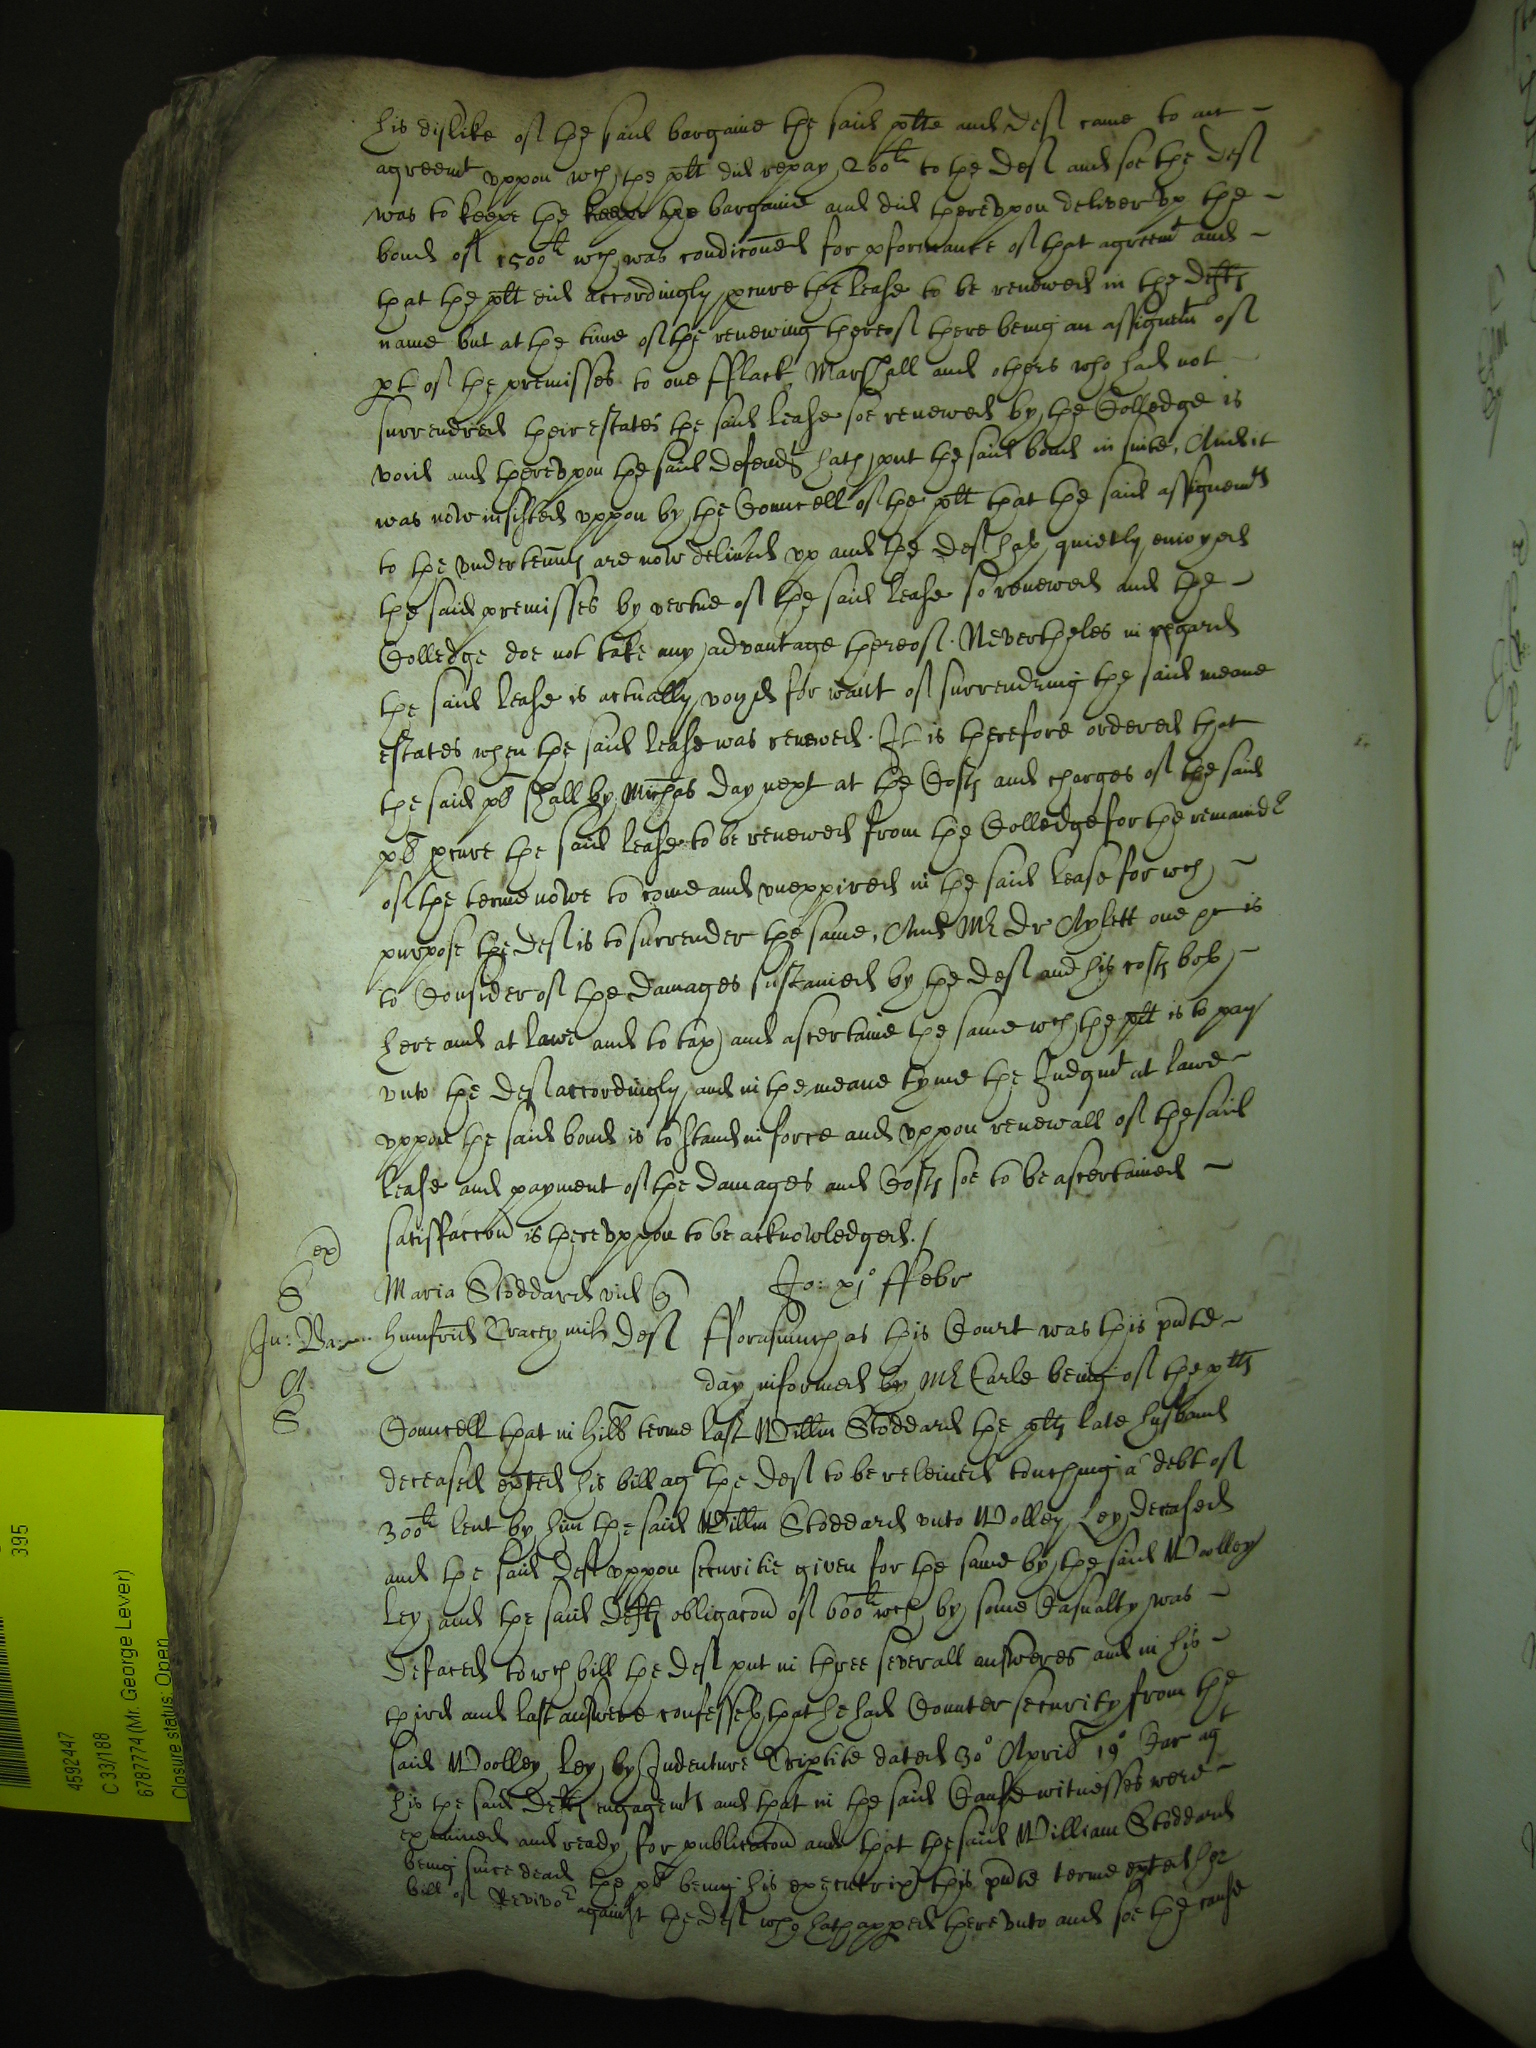 his dislike of the said bargaine the said plte and deft came to an
agreemt uppon wch the plt did repay 260li to the deft and soe the deft
was to keepe the keepe the bargaine and did thereupon deliver up the
bond of 1500li wch was condiconed for pformance of that agreemt and
that the plt did accordingly pcure the lease to be renewed in the defts
name but at the time of the renewing thereof there being an assignemt of
pt of the premisses to one fflack Marshall and others who had not
surrendred their estates the said lease soe renewed by the Colledge is
void and thereupon the said defendt hath put the said bond in suite, And it
was now insisted uppon by the Councell of the plt that the said assignemts
to the undertennts are now delivred up and the deft hath quietly enioyed
the said premisses by vertue of the said lease so renewed and the
Colledge doe not take any advantage thereof. Neverthelès in regard
the said lease is actually voyd for want of surrendring the said meane
estates when the said lease was renewed. It is therefore ordered that
the said pl shall by Michas day next at the Costs and charges of the said
pl pcure the said lease to be renewed from the Colledge for the remaindr
of the terme nowe to come and unexpired in the said lease for wch
purpose the deft is to surrender the same, And Mr Dr Aylett one &c is
to Consider of the damages sustained by the deft and his costs both
here and at lawe and to tax and ascertaine the same wch the plt is to pay
unto the deft accordingly and in the meane tyme the Judgmt at lawe
uppon the said bond is to stand in force and uppon renewall of the said
lease and payment of the damages and Costs soe to be ascertained
satisffaccon is thereuppon to be acknowledged./
ex
S
Maria Stoddard vid
Jo: xj° ffebr
Humfrid Tracey milt deft fforasmuch as this Court was this pnte
A
S
day informed by Mr Earle being of the plts
Councell that in Hill terme last Willm Stoddard the plts late husband
deceased exted his bill agt the deft to be releived touching a debt of
300li lent by him the said Willm Stoddard unto Wolley Ley deceased
and the said Deft uppon securitie given for the same by the said Woolley
Ley and the said Defts obligacon of 600li wch by some Casualty was
Defaced to wch bill the deft put in three severall answeres and in his
third and last answere confesseth that he had Counter security from the
said Woolley Ley by Indenture Triptite dated 30° April 19° Jac agt
his the said Defts engagemts and that in the said Cause witnesses were
examined and ready for publicacon and that the said William Stoddard
being since dead the pl being his executrix this pnte terme exted her
bill of Revivor against the deft who hath appred thereunto and soe the cause
395
4592447
C 33/188
6787774 (Mr. George Lever)
Closure status: Open